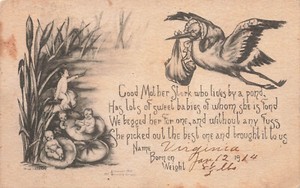 Good Mother Stork who lives by a pond,
Has lots of sweet babies of whom she is fond
We begged her for one, and without any fuss
She picked out the best one and brought it to us
Name Virginia
Born on Jan 12 1914
Weight lbs